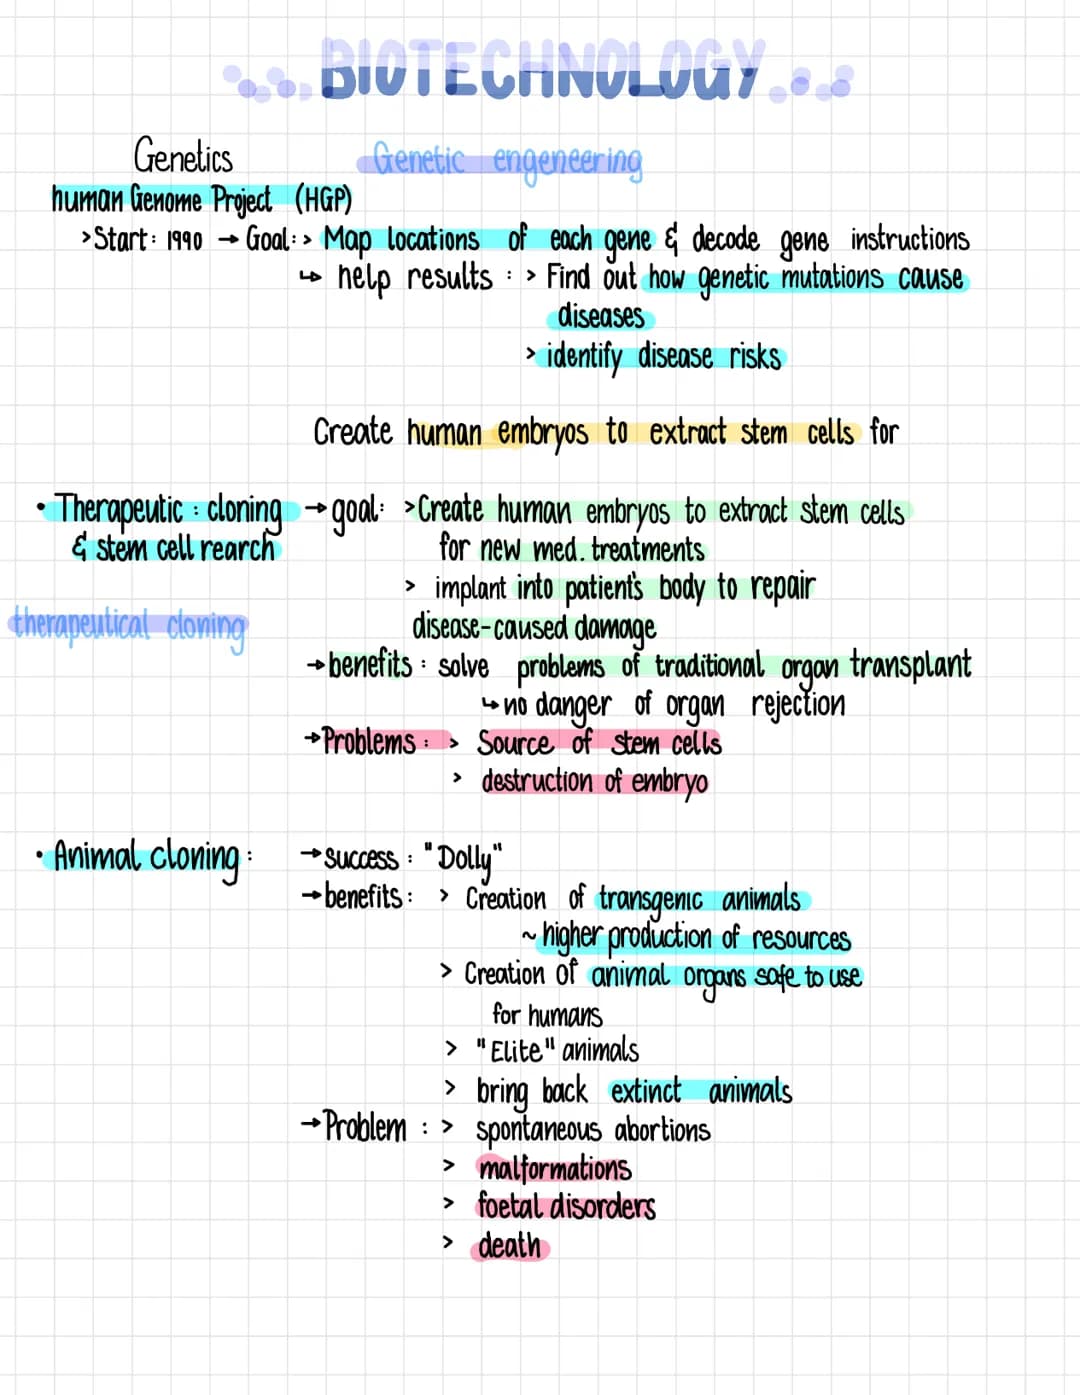 BIOTECHNOLOGY
Genetics Genetic engeneering
human Genome Project (HGP)
>Start: 1990 → Goal: > Map locations of each gene & decode gene instructions
↳ help results : > Find out how genetic mutations cause
diseases
> identify disease risks
Create human embryos to extract stem cells for
• Therapeutic : cloning → goal: >Create human embryos to extract stem cells
& stem cell rearch for new med. treatments
> implant into patient's body to repair
therapeutical cloning disease-caused damage
→ benefits : solve problems of traditional organ transplant
↳ no danger of organ rejection
→ Problems : > Source of stem cells
> destruction of embryo
• Animal cloning : → success : "Dolly"
→ benefits : > Creation of transgenic animals
~ higher production of resources
> Creation of animal organs safe to use
for humans
> "Elite" animals
> bring back extinct animals
→ Problem : > spontaneous abortions
> malformations
> foetal disorders
> death